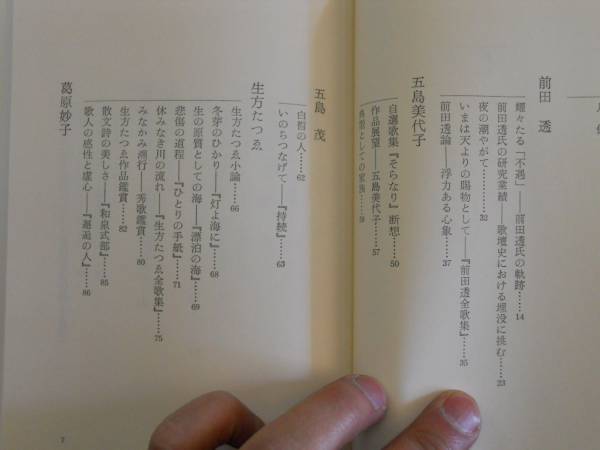 前田 透
耀々たる「不遇」――前田透氏の軌跡……14
前田透氏の研究業績――歌壇史における埋没に挑む……23
夜の潮やがて……32
いまは天よりの賜物として――『前田透全歌集』……35
前田透論――浮力ある心象……37
五島美代子
自選歌集『そらなり』断想……50
作品展望――五島美代子……57
典型としての家族……59
五島 茂
白皙の人……62
いのちつなげて――『持続』……63
生方たつゑ
生方たつゑ小論……66
冬芽のひかり――『灯よ海に』……68
生の原質としての海――『漂泊の海』……69
悲傷の道程――『ひとりの手紙』……71
休みなき川の流れ――『生方たつゑ全歌集』……75
みなかみ溯行――秀歌鑑賞……80
生方たつゑ作品鑑賞……82
散文詩の美しさ――『和泉式部』……85
歌人の感性と虚心――『邂逅の人』……86
葛原妙子
7